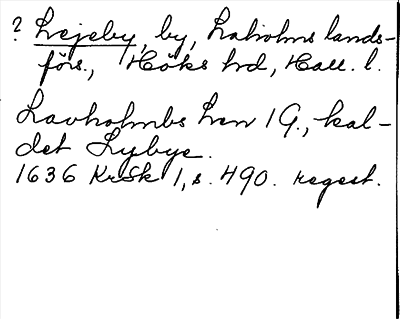 ? Lejeby, by, Laholms lands-
förs., Höks hd, Hall. l.
Lavholmbs Len 1 G., kal-
det Lybye.
1636 KrSk 1, s. 490. regest.